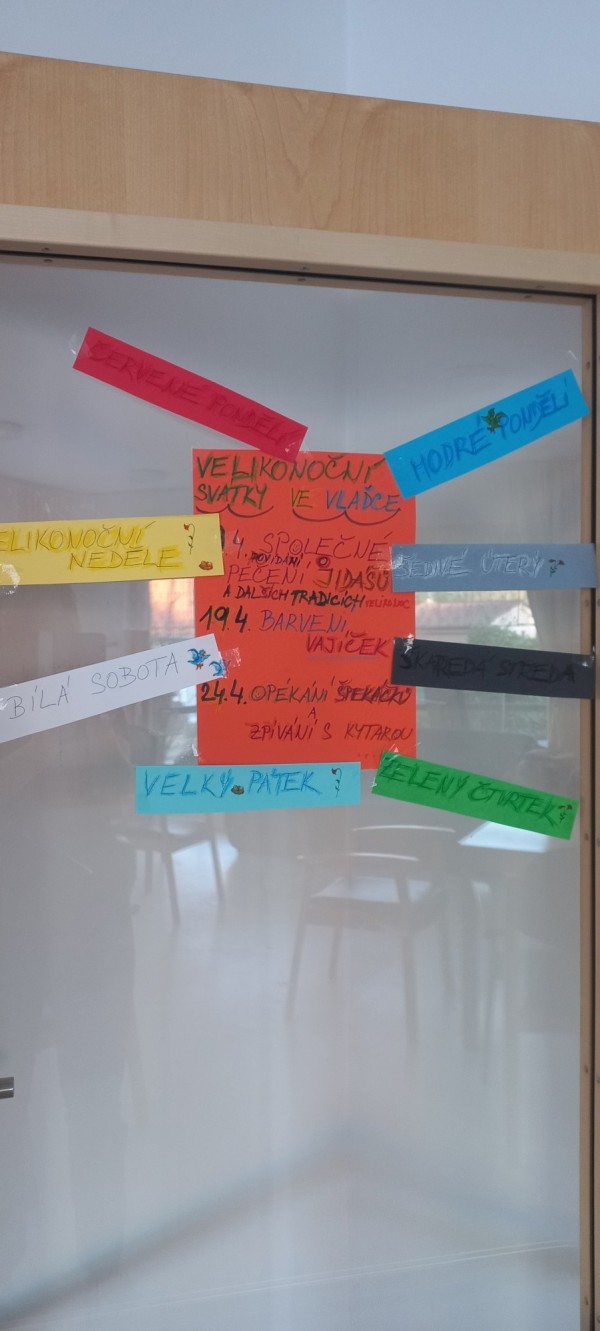 ČERVENÉ PONDĚLÍ
MODRÉ PONDĚLÍ
VELIKONOČNÍ
SVÁTKY VE VLAĎCE
4. SPOLEČNÉ
POVÍDÁNÍ O
PEČENÍ JIDÁŠŮ
A DALŠÍCH TRADICÍCH VELIKONOC
19.4. BARVENÍ
VAJÍČEK
24.4. OPÉKÁNÍ ŠPEKÁČKŮ
A
ZPÍVÁNÍ S KYTAROU
ELIKONOČNÍ
NEDĚLE
ŠEDIVÉ ÚTERÝ
BÍLÁ SOBOTA
ŠKAREDÁ STŘEDA
VELKÝ PÁTEK
ZELENÝ ČTVRTEK